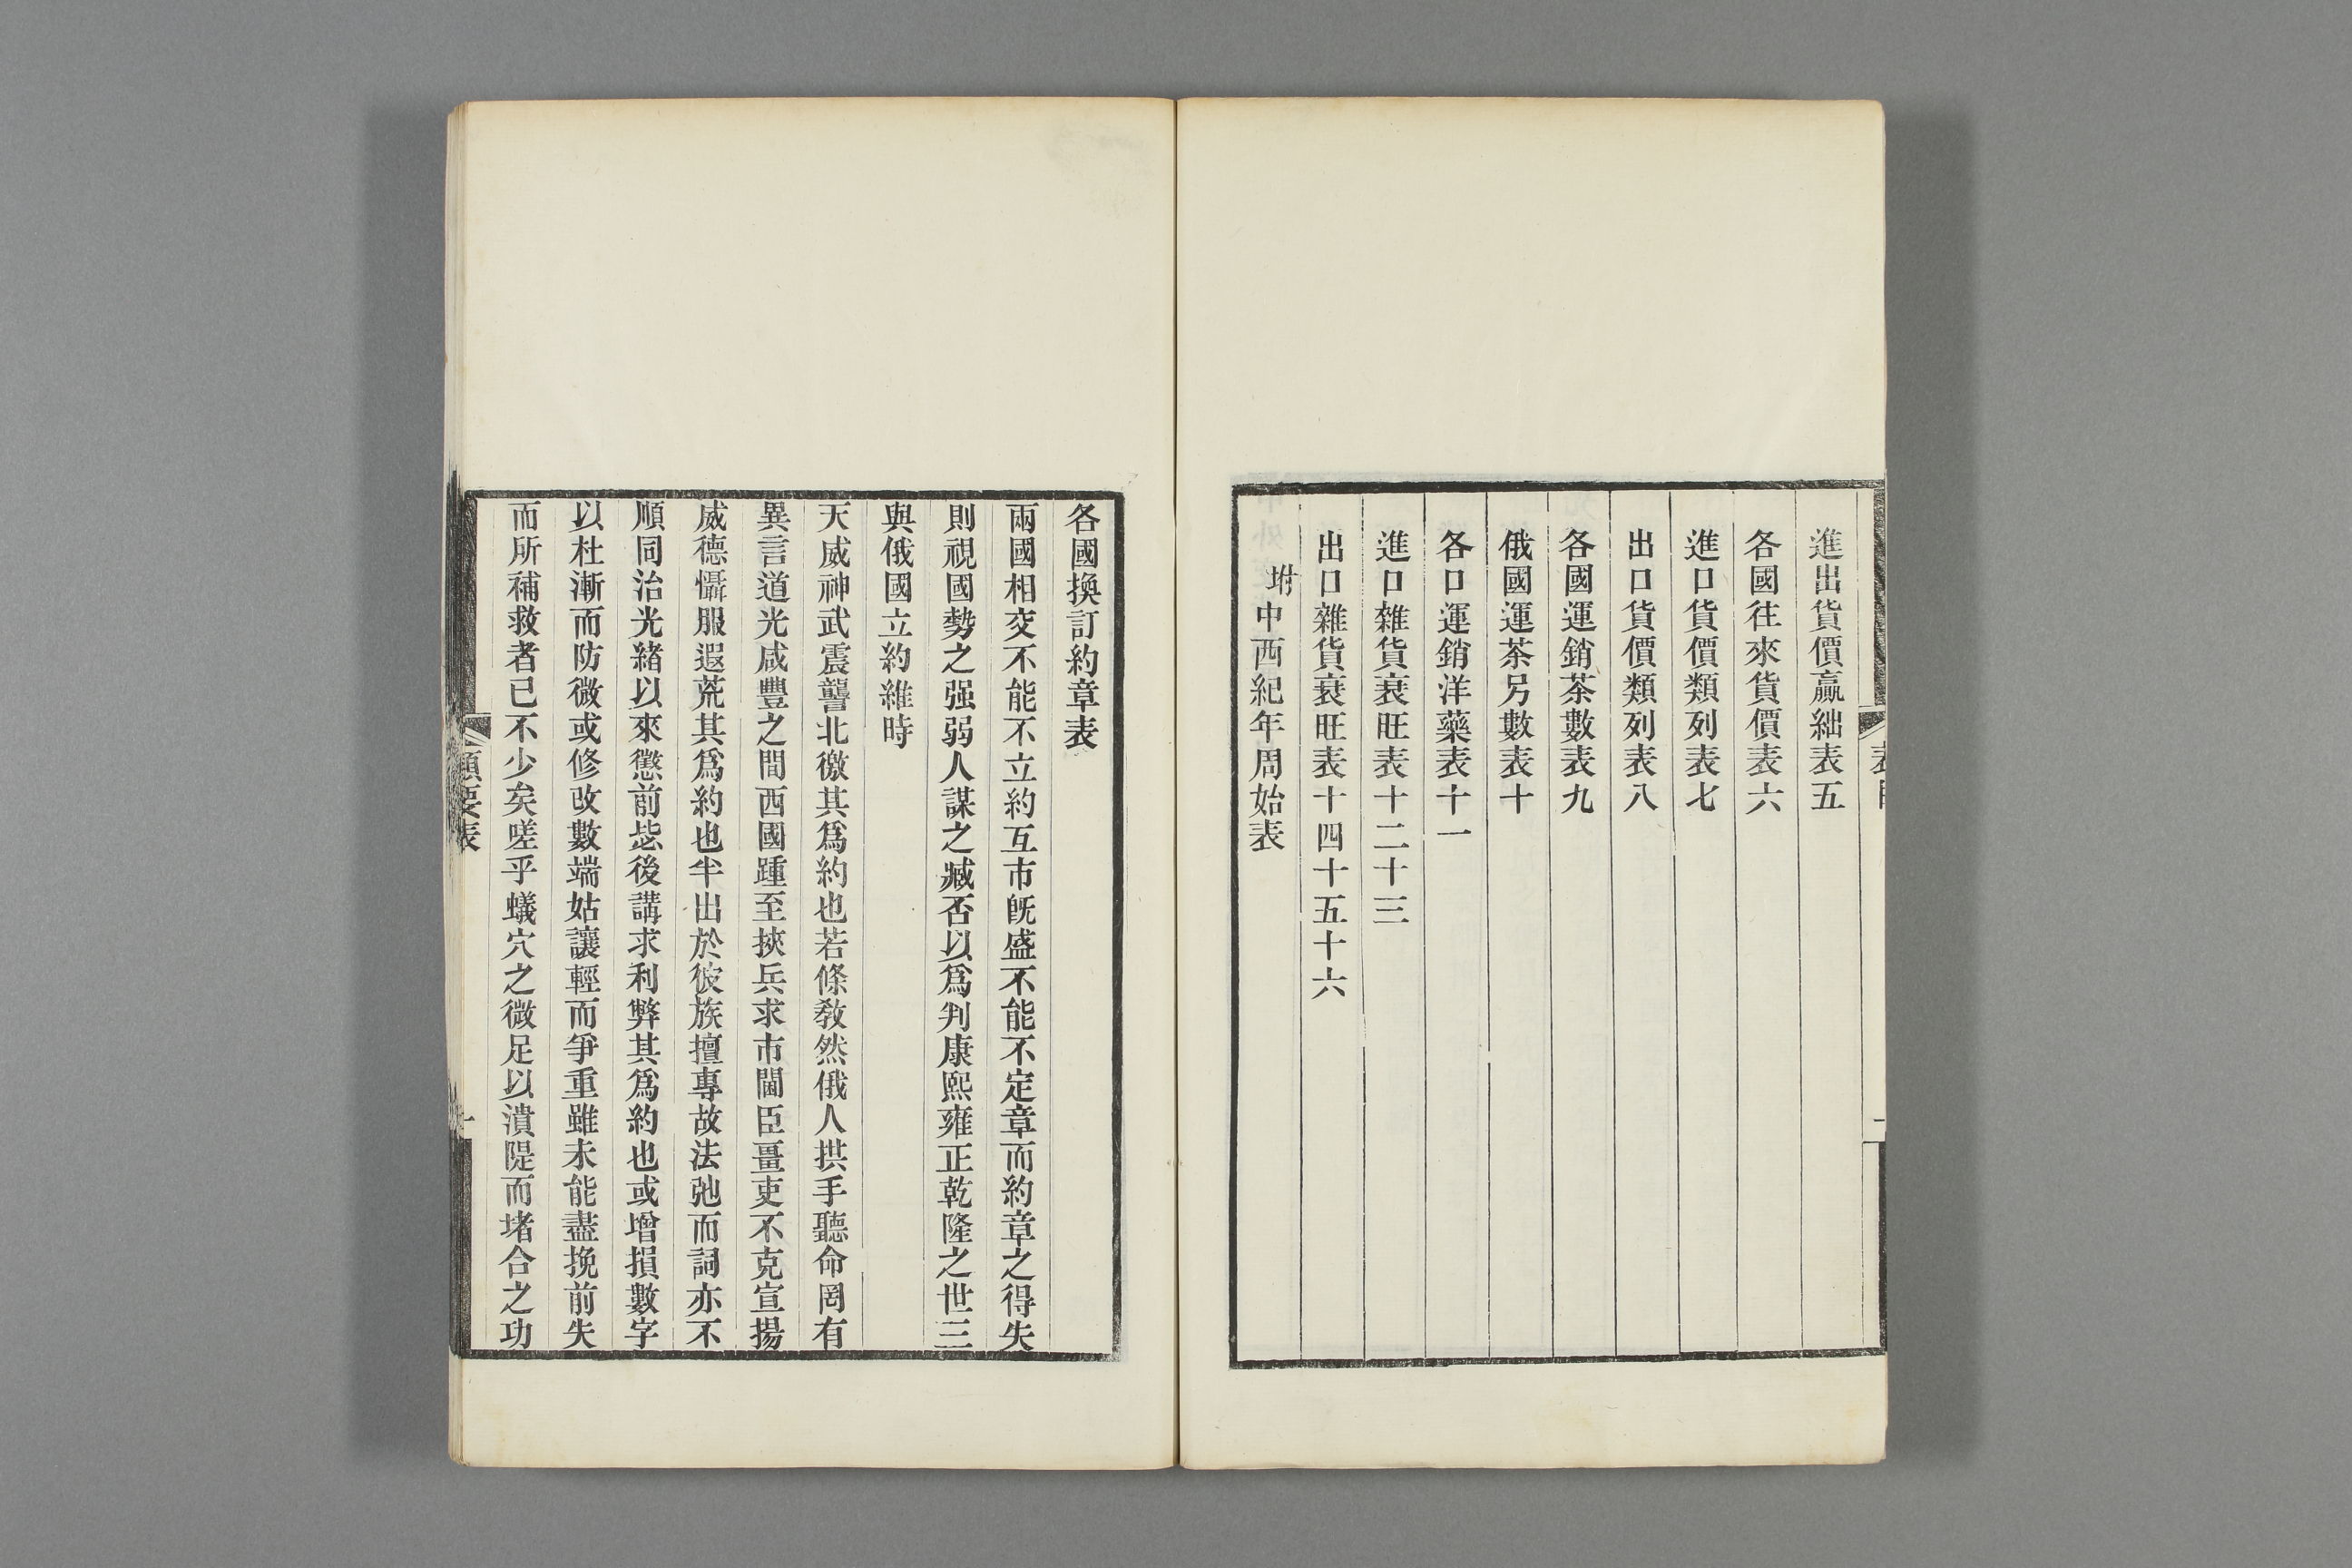 進出貨價贏絀表五
各國往來貨價表六
進口貨價類列表七
出口貨價類列表八
各國運銷茶數表九
俄國運茶另數表十
各口運銷洋藥表十一
進口雜貨衰旺表十二十三
出口雜貨衰旺表十四十五十六
坿中西紀年周始表
各國換訂約章表
兩國相交不能不立約互市旣盛不能不定章而約章之得失
則視國勢之强弱人謀之臧否以爲判康熙雍正乾隆之世三
與俄國立約維時
天威神武震讋北徼其爲約也若條敎然俄人拱手聽命罔有
異言道光咸豐之間西國踵至挾兵求市閫臣畺吏不克宣揚
威德懾服遐荒其爲約也半出於彼族擅專故法弛而詞亦不
順同治光緒以來懲前毖後講求利弊其爲約也或增損數字
以杜漸而防微或修改數端姑讓輕而爭重雖未能盡挽前失
而所補救者已不少矣嗟乎蟻穴之微足以潰隄而堵合之功